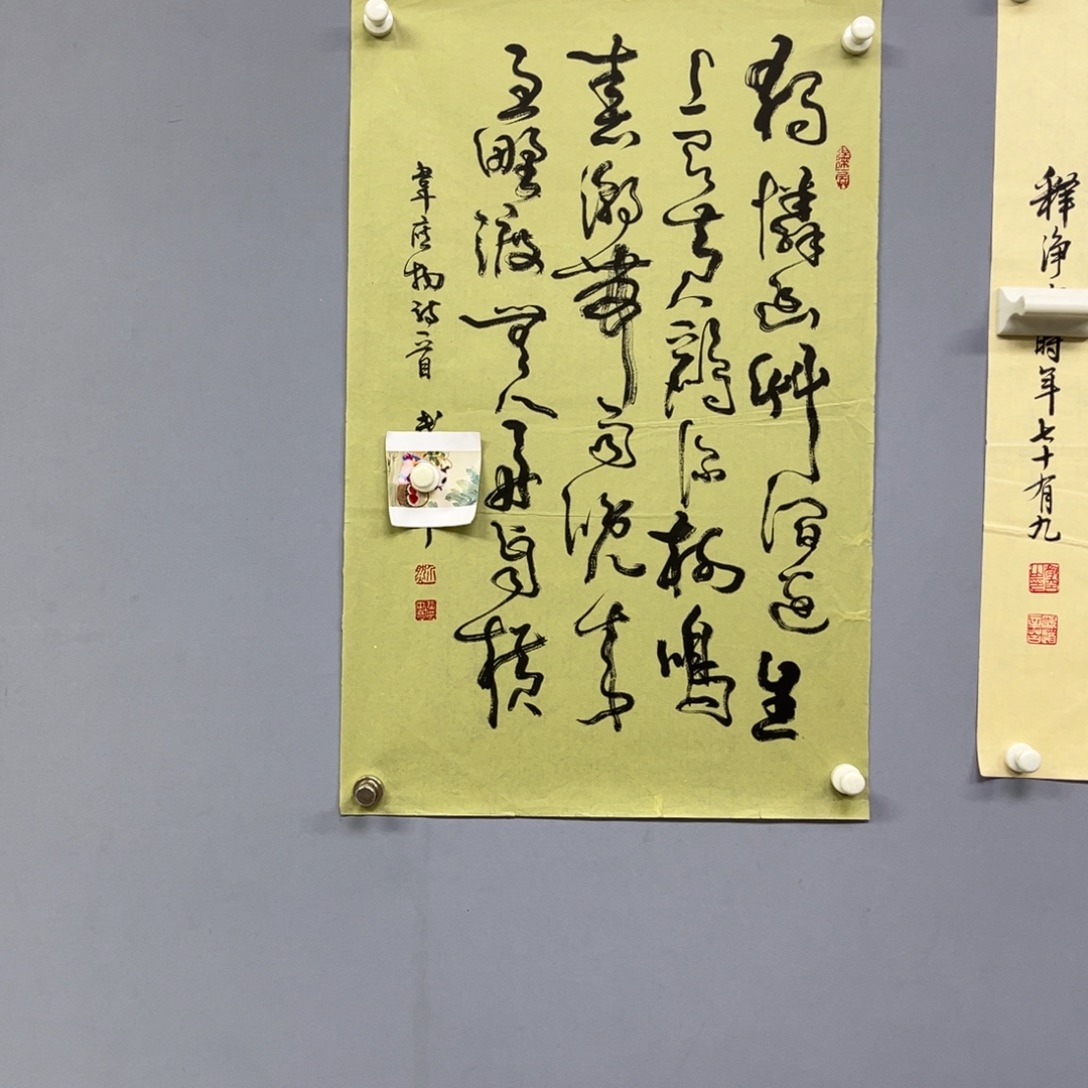 释净 时年七十有九
獨憐幽艸澗邊生
上有黄鸝深樹鳴
春潮帶雨晚來
急野渡無人舟自橫
韋應物詩一首 书